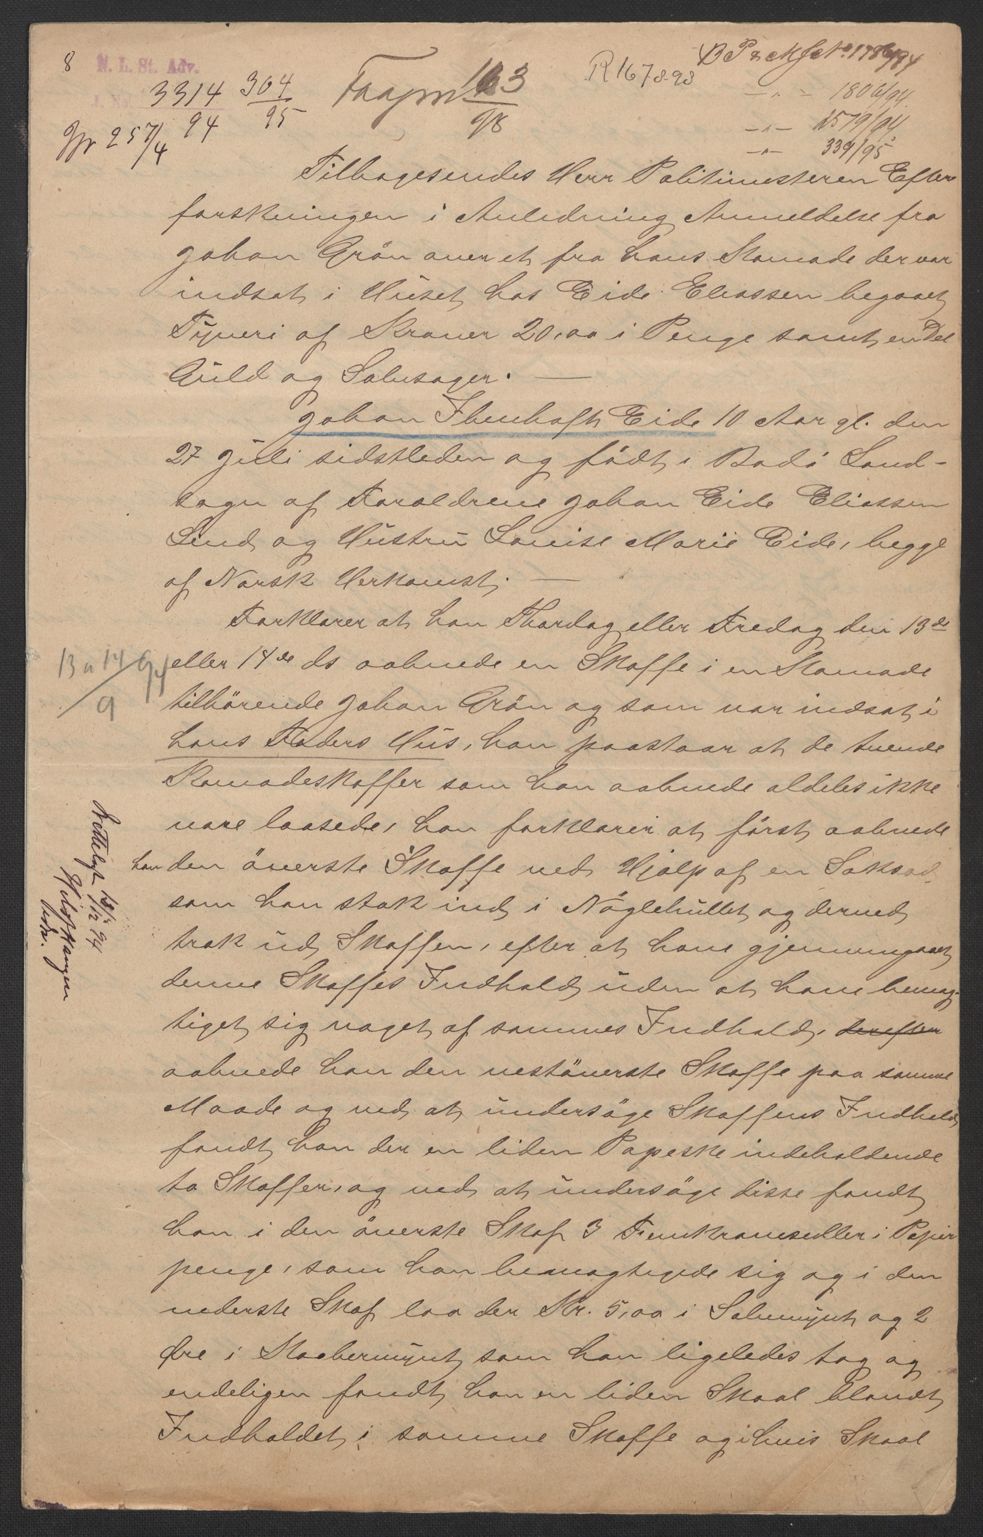 8
N. L. St. Adv.
J. No.
3314 304
94 95
Jr 257/4
163
98
R 167 893
1786/94
— „ — 1806/94
— „ — 1579/94
— „ — 339/95
Tilbagesendes Herr Politimesteren Efter
forskningen i Anledning Anmeldelse fra
Johan Grön over et fra hans Komode der var
indsat i Huset hos Eide Eliassen begaaet
Tyveri af Kroner 20,00 i Penge samt en Del
Guld og Sølvsager. —
Johan Ibenhoft Eide 10 Aar gl. den
27 Juli sidstleden og födt i Bodö Land-
sogn af Foraldrene Johan Eide Eliassen
Lind og Hustru Lovise Marie Eide, begge
af Norsk Herkomst. —
Forklarer at han Thordag eller Fredag den 13de
eller 14de ds aabnede en Skoffe i en Komode
tilhörende Johan Grön og som var indsat i
hans Faders Hus, han paastaar at de tvende
Komodeskoffer som han aabnede aldeles ikke
vare laasede, han forklarer at först aabnede
han den överste Skoffe ved Hjalp af en Saks
som han stak ind i Nöglehullet og derved
trak ud Skoffen, efter at have gjennemgaaet
denne Skoffes Indhold uden at have bemæg-
tiget sig noget af sammes Indhold, derefter
aabnede han den nestöverste Skoffe paa samme
Maade og ved at undersöge Skoffens Indhold
fandt han der en liden Papeske indeholdende
to Skoffer, og ved at undersöge disse fandt
han i den överste Skof 3 Femkronesedler i Papir
penge, som han bemagtigede sig og i den
nederste Skof laa der Kr. 5,00 i Sölvmynt og 2
Öre i Kaabermynt som han ligeledes tog og
endeligen fandt han en liden Skaal blandt
Indholdet i samme Skoffe og i hvis Skaal
13 a 14
9
12 94